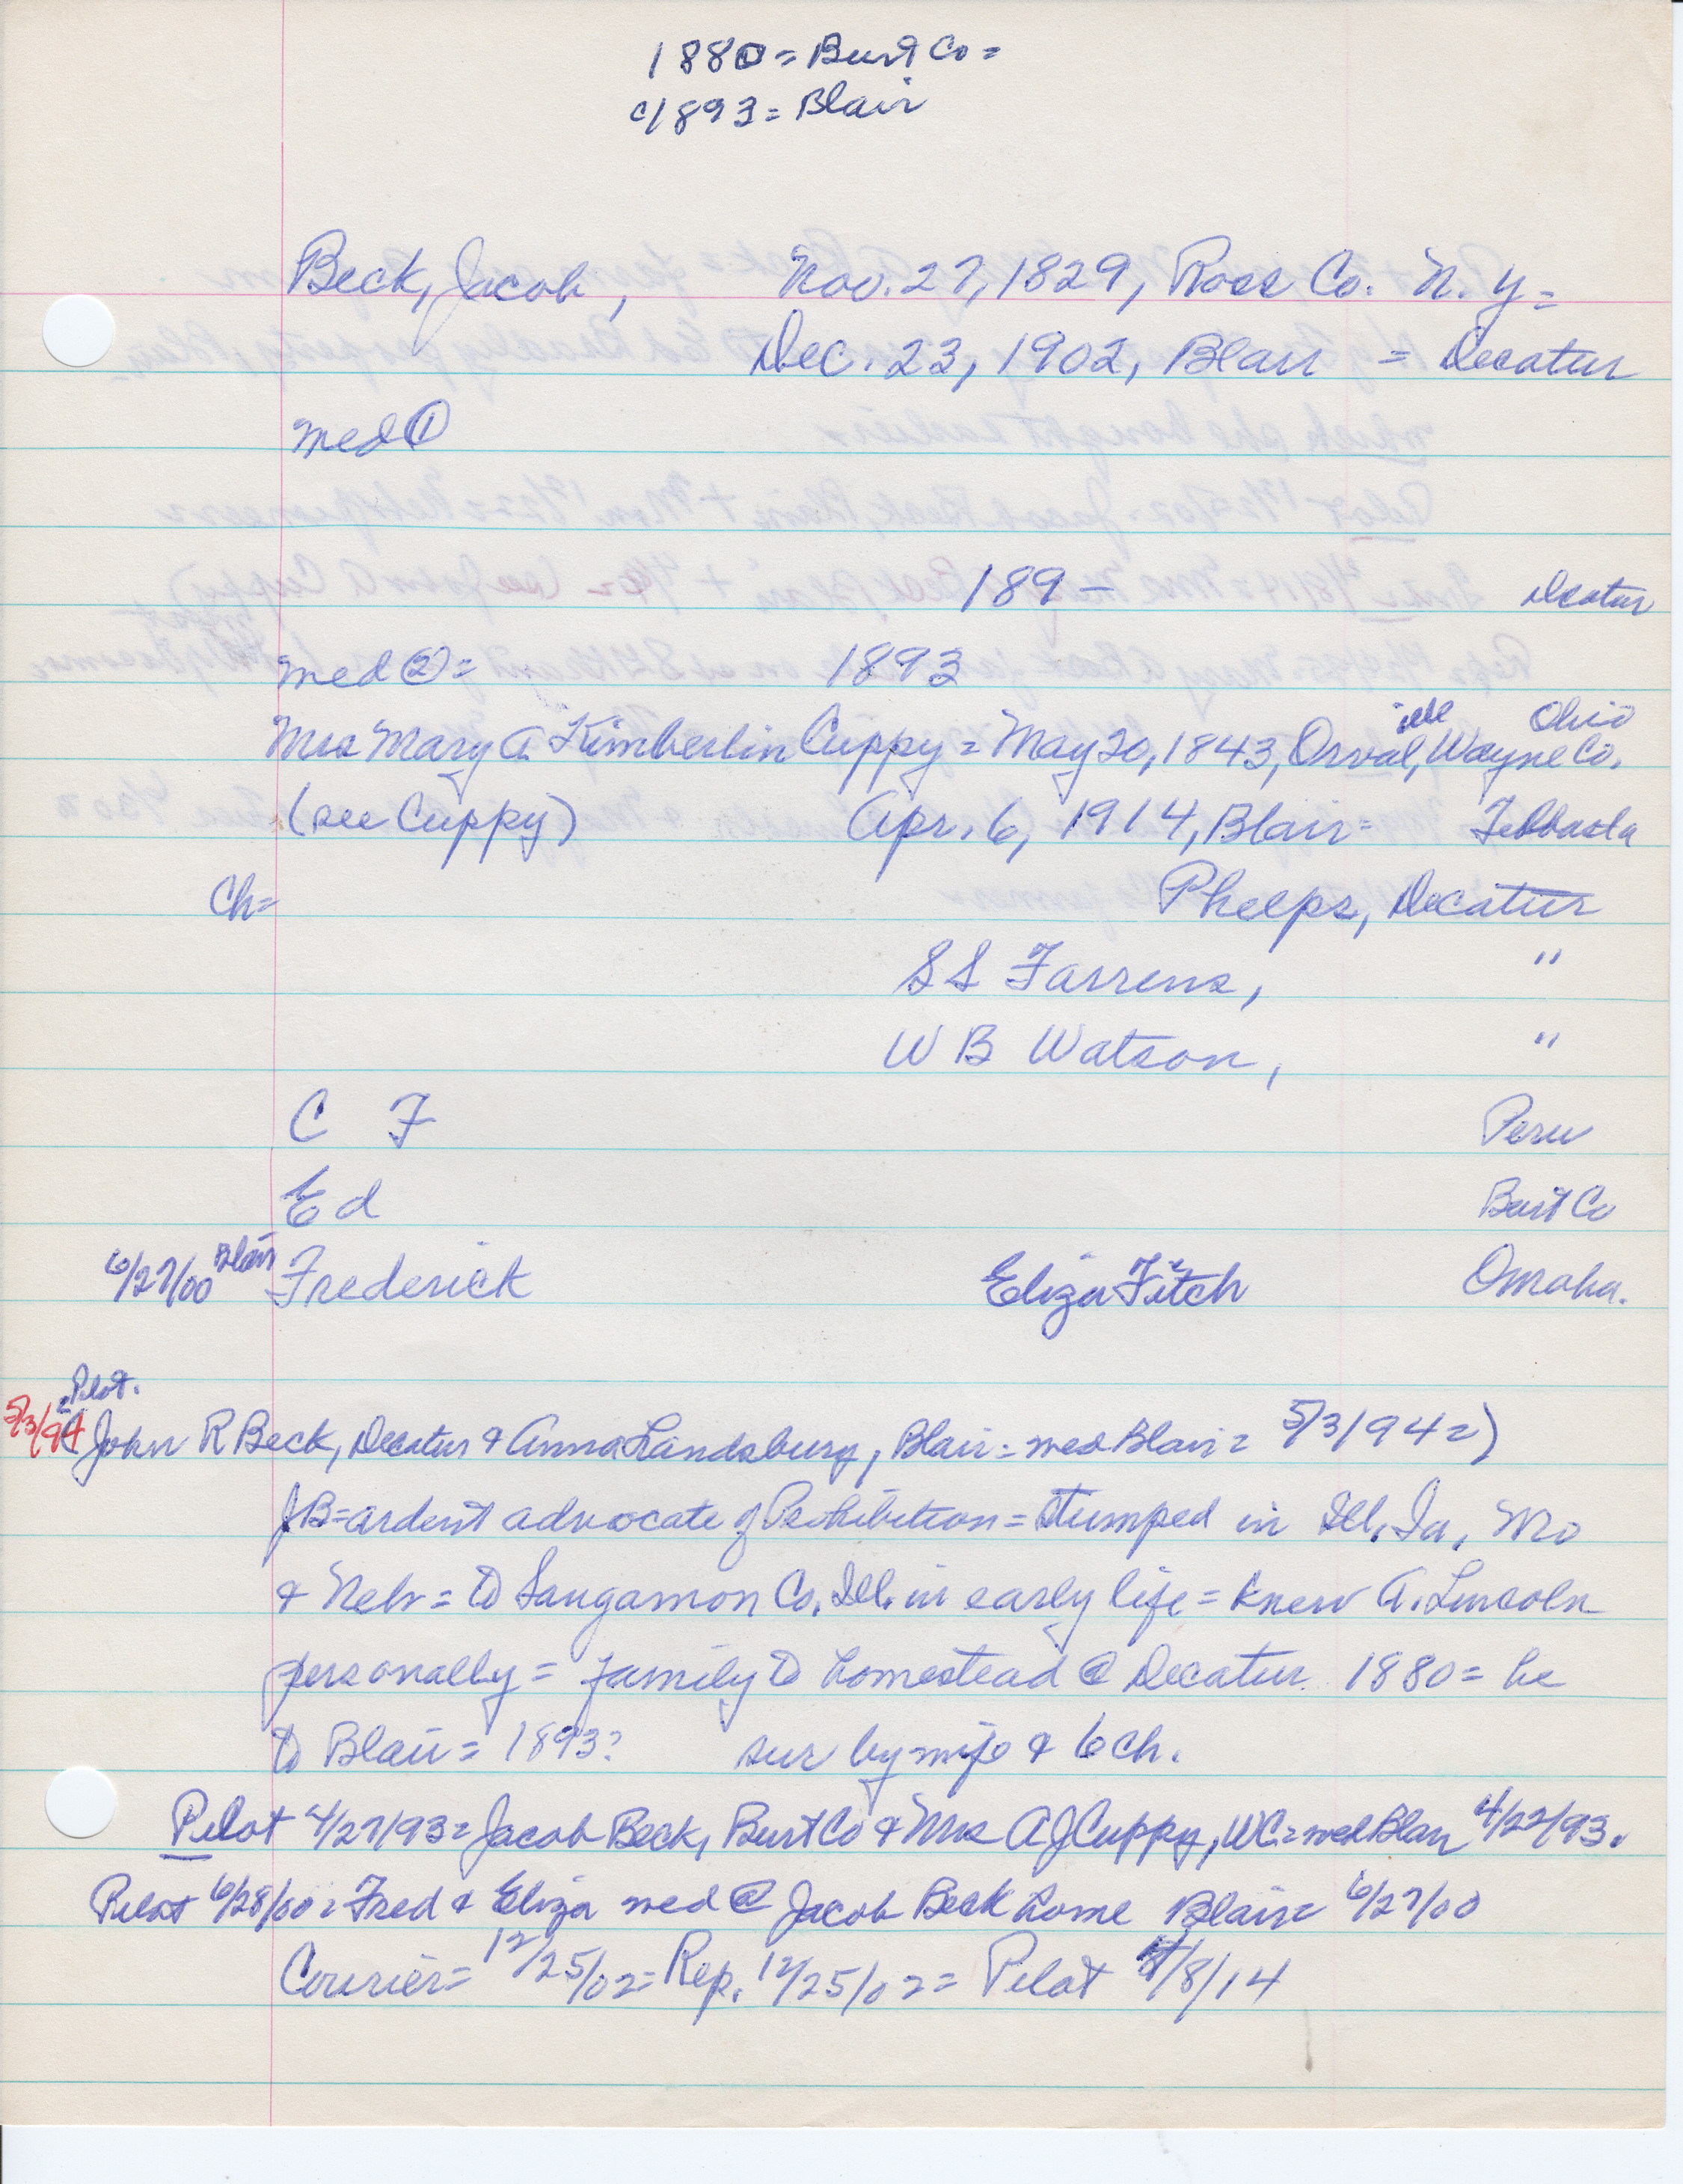 1880 = Burt Co =
c/1893 = Blair
Beck, Jacob, Nov. 27, 1829, Ross Co. N.Y =
Dec. 23, 1902, Blair = Decatur
med ①
189- Decatur
med ② = 1893
ill Ohio
Mrs Mary A Kimberlin Cuppy = May 20, 1843, Orval, Wayne Co.
(see Cuppy) Apr. 6, 1914, Blair =
Ch= Phelps, Decatur
S S Farrens, "
W B Watson, "
C F Peru
Ed Burt Co
6/27/00 Blair Frederick Eliza Fitch Omaha.
= Pilot.
5/3/94 (John R Beck, Decatur & Anna Landsburg, Blair = med Blair = 5/3/94 =)
JB = ardent advocate of Prohibition = stumped in Ill, Ia, Mo
& Nebr = to Sangamon Co, Ill. in early life = knew A. Lincoln
personally = family to homestead @ Decatur 1880 = he
to Blair = 1893? sur by wife & 6 ch.
Pilot 4/27/93 = Jacob Beck, Burt Co & Mrs A J Cuppy, WC = med Blair 4/22/93.
Pilot 6/28/00 = Fred & Eliza med @ Jacob Beck home Blair = 6/27/00
Courier = 12/25/02 = Rep. 12/25/02 = Pilot 4/8/14